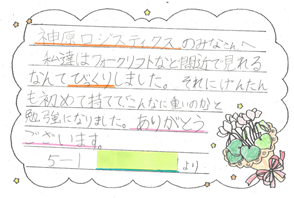 神原ロジスティクスのみなさんへ
私達はフォークリフトなど間近で見れる
なんてびっくりしました。それにげんたん
も初めて持ててこんなに重いのかと
勉強になりました。ありがとう
ございます。
5-1 より